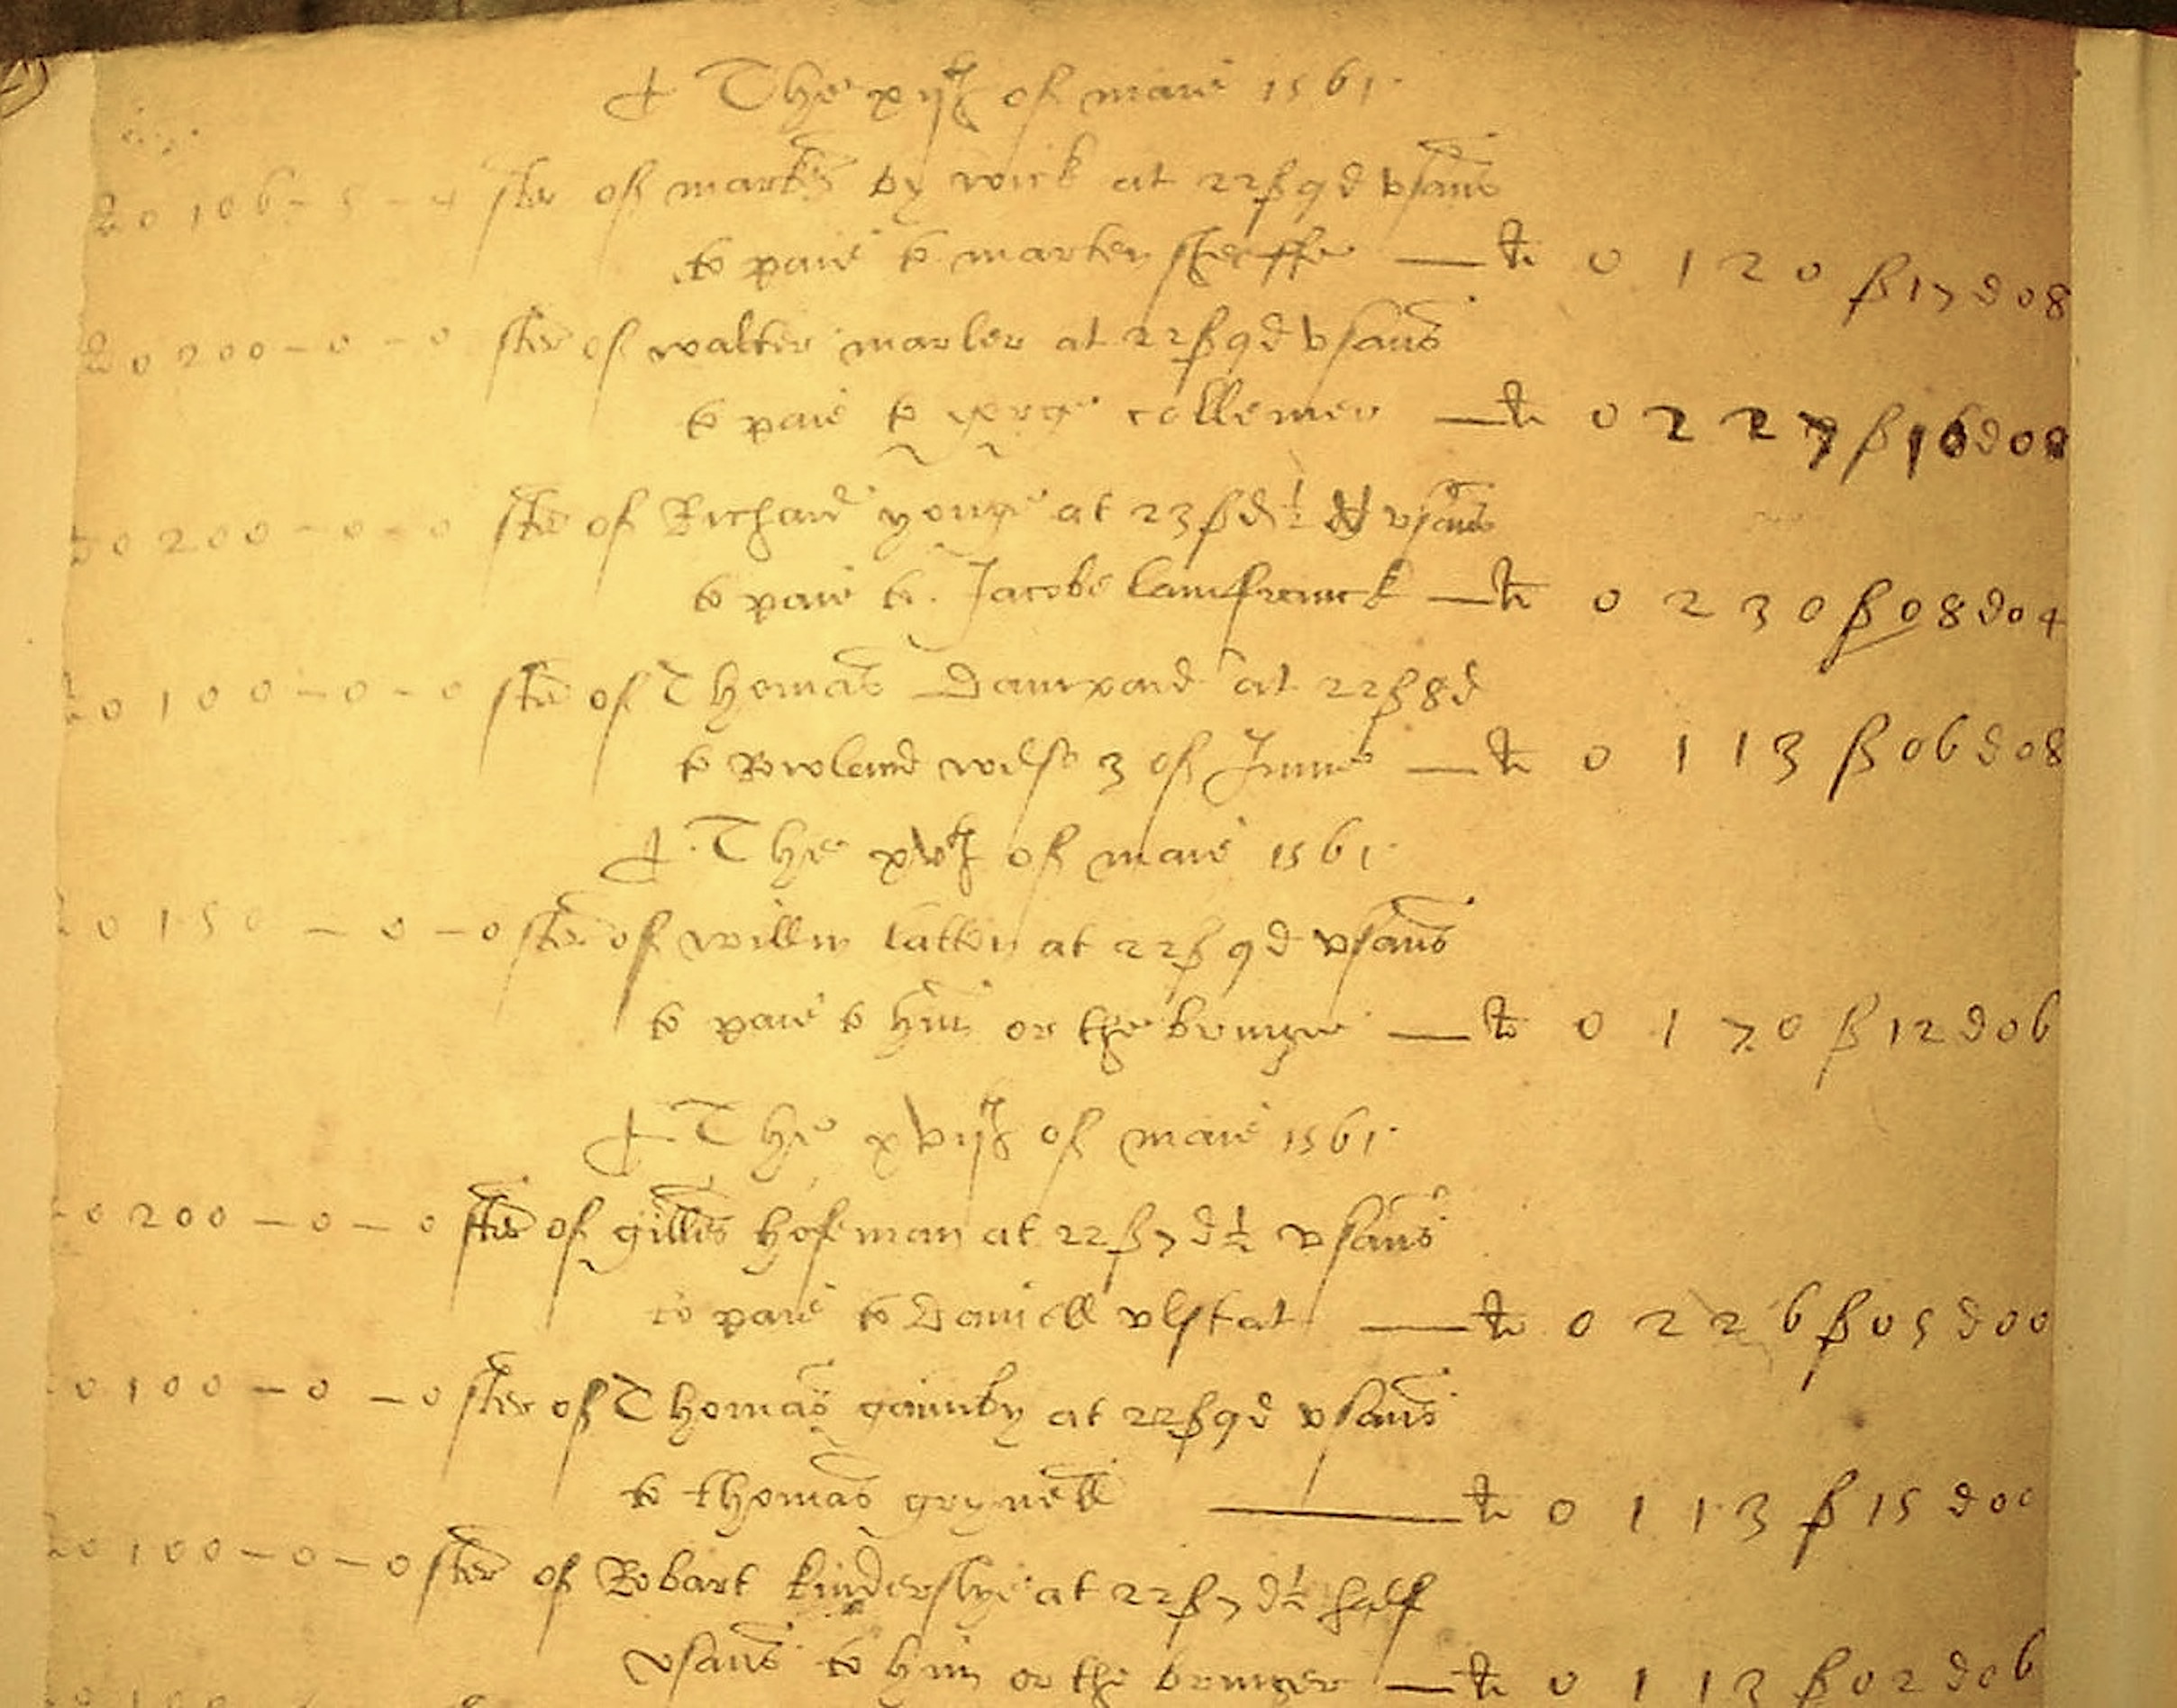 The xijth of maie 1561
£ 0 106 - 5 - 4 ster of markes by wick at 22ß 9d usans
to paie to marten — £ 0 120 ß 17 d 08
£ 0 200 - 0 - 0 ster of walter marler at 22ß 9d usans
to paie to gorge collemer — £ 0 227 ß 10 d 00
£ 0 200 - 0 - 0 ster of Richard yonge at 23ß d ½ usans
to paie to Jacobe — £ 0 230 ß 08 d 04
£ 0 100 - 0 - 0 ster of Thomas at 22ß 8d
to Rowland 3 of June — £ 0 113 ß 06 d 08
The xvth of maie 1561
£ 0 150 - 0 - 0 ster of willm latten at 22ß 9d usans
to paie to him or the bringer — £ 0 170 ß 12 d 06
The xvijth of maie 1561
0 200 - 0 - 0 ster of gilles hofman at 22ß 7d ½ usans
to paie to Daniell vlstat — £ 0 226 ß 05 d 00
0 100 - 0 - 0 ster of Thomas at 22ß 9d usans
to thomas grynell — £ 0 113 ß 15 d 00
0 100 - 0 - 0 ster of Robart kinderslye at 22ß 7d ½ half
usans to him or the bringer — £ 0 113 ß 02 d 06